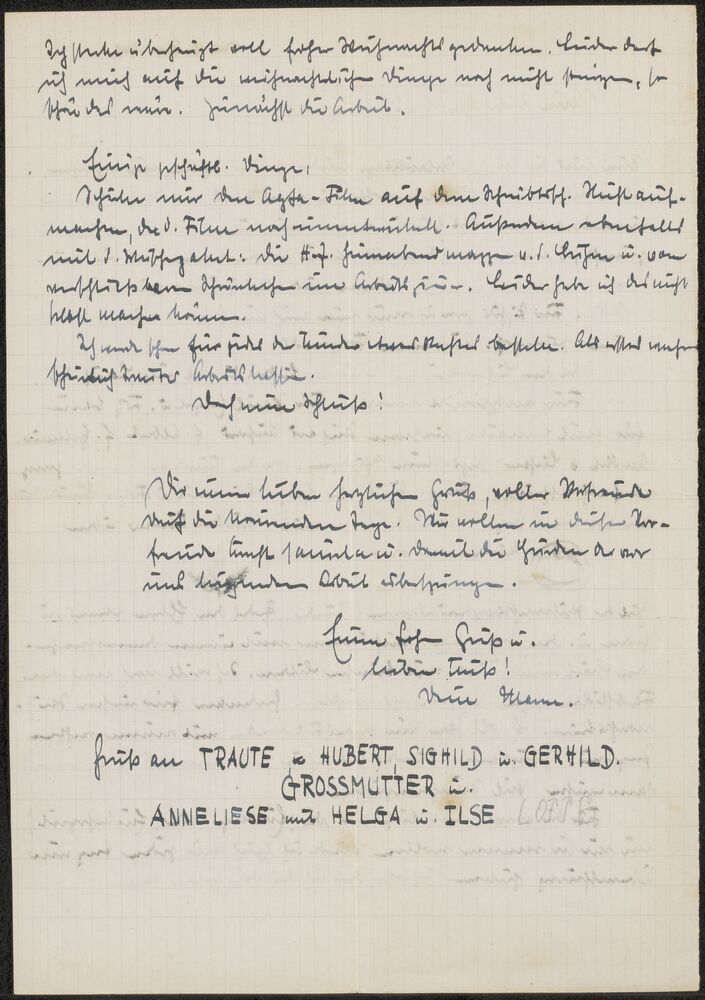 Ich stecke überhaupt voll froher Weihnachtsgedanken. Leider darf
ich mich auf die weihnachtlichen Dinge noch nicht stürzen, so
schön das wäre. Zunächst die Arbeit.
Einige geschäftl. Dinge:
Schicke mir den Agfa-Film auf dem Schreibtisch. Nicht auf-
machen, da d. Film noch unentwickelt. Außerdem ebenfalls
mit d.: die H.J. u. d. u. vom
im Arbeitszimmer. Leider habe ich das nicht
selbst machen können.
Ich werde schon für jedes der Kinder etwas basteln. Als erstes
Arbeitskasten.
Doch nun Schluß!
Dir meine lieben herzlichen Grüße, voller Vorfreude
auf die kommenden Tage. Wir wollen in dieser Vor-
freude Kraft sammeln u. damit die Hürden der vor
uns liegenden Arbeit überspringen.
Einen frohen Gruß u.
lieben Kuß!
Dein Mann.
Gruß an TRAUTE u. HUBERT, SIGHILD u. GERHILD.
GROSSMUTTER u.
ANNELIESE mit HELGA u. ILSE LOTTE